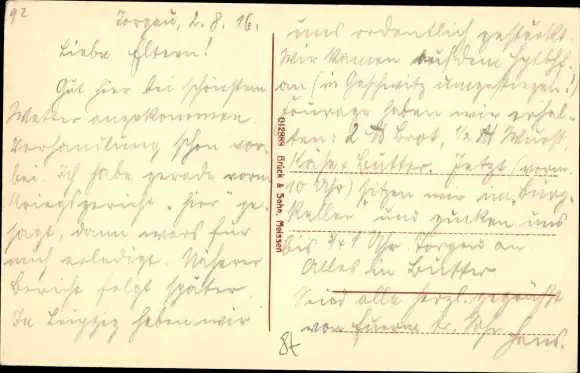 92
Torgau, 2. 8. 16.
Liebe Eltern!
Gut hier bei schönstem
Wetter angekommen.
Verhandlung schon vor-
bei. Ich habe gerade vorm
Kriegsgericht "hier" ge-
sagt, dann wars für
mich erledigt. Näherer
Bericht folgt später.
In Leipzig haben wir
uns ordentlich gestärkt.
Wir kamen auf dem
an (in umgestiegen!)
Courage haben wir erhal-
ten: 2 ℔ Brot, 1/2 ℔ Wurst,
Käse & Butter. Jetzt (vorm.
10 Uhr) sitzen wir im "Burg-
keller" und gucken uns
bis 3/4 1 Uhr Torgau an
Alles in Butter
Seid alle herzl. gegrüßt
von Euerm tr. Sohn
Hans.
012988 Brück & Sohn, Meissen